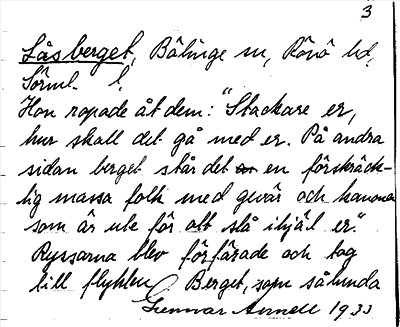 3
Låsberget, Bälinge sn, Rönö hd,
Sörml. l.
Hon ropade åt dem: "Stackare er,
hur skall det gå med er. På andra
sidan berget står det en förskräck-
lig massa folk med gevär och kanona
som är ute för att slå ihjäl er."
Ryssarna blev förfärade och tog
till flykten. Berget, som sålunda
Gunnar Arnell 1933